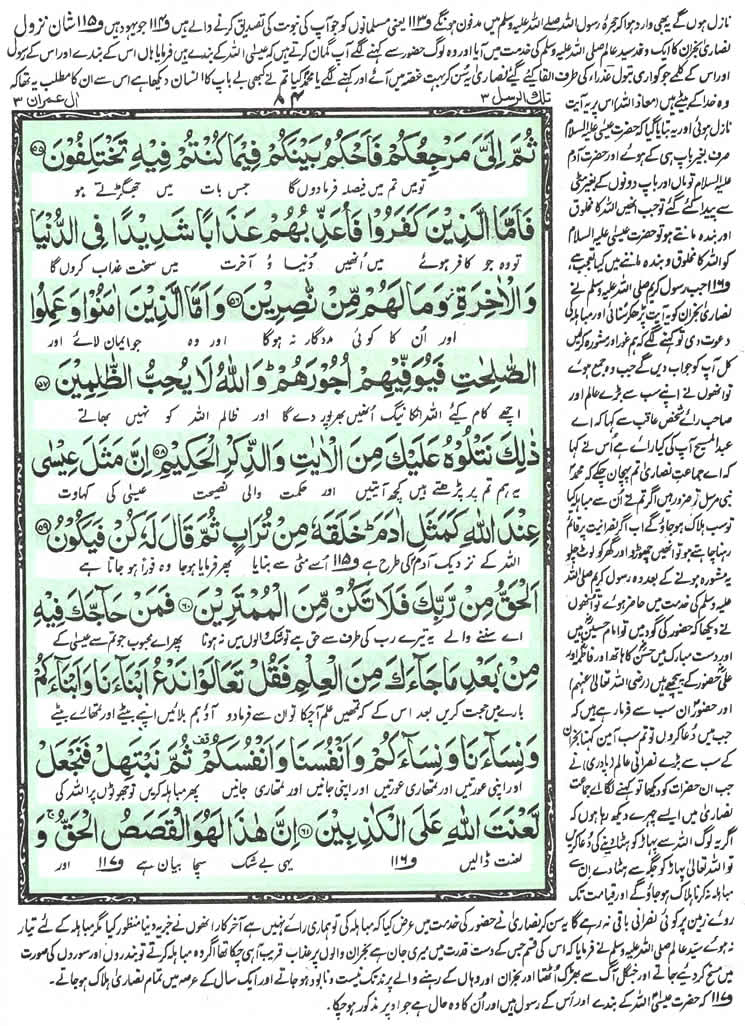 نازل ہوں گے یہ بھی وارد ہوا کہ حجرۂ رسول اللہ صلے اللہ علیہ وسلم میں مدفون ہونگے و۱۱۳ یعنی مسلمانوں کو جو آپ کی نبوت کی تصدیق کرنے والے ہیں و۱۱۴ جو یہود ہیں و۱۱۵ شان نزول
نصاریٰ نجران کا ایک وفد سید عالم صلی اللہ علیہ وسلم کی خدمت میں آیا اور وہ لوگ حضور سے کہنے لگے آپ گمان کرتے ہیں کہ عیسیٰ اللہ کے بندے ہیں فرمایا ہاں اس کے بندے اور اس کے رسول
اور اس کے کلمے جو کواری بتول عذراء کی طرف القا کئے گئے نصاریٰ یہ سن کر بہت غصہ میں آئے اور کہنے لگے یا محمد کیا تم نے کبھی بے باپ کا انسان دیکھا ہے اس سے ان کا مطلب یہ تھا کہ
تلك الرسل ۳
۸۴
اٰل عمران ۳
ثُمَّ اِلَیَّ مَرْجِعُكُمْ فَاَحْكُمُ بَیْنَكُمْ فِیْمَا كُنْتُمْ فِیْهِ تَخْتَلِفُوْنَ ۵۵
تو میں تم میں فیصلہ فرما دوں گا جس بات میں جھگڑتے ہو
فَاَمَّا الَّذِیْنَ كَفَرُوْا فَاُعَذِّبُهُمْ عَذَابًا شَدِیْدًا فِی الدُّنْیَا
تو وہ جو کافر ہوئے میں اُنھیں دُنیا و آخرت میں سخت عذاب کروں گا
وَ الْاٰخِرَةِ وَمَا لَهُمْ مِّنْ نّٰصِرِیْنَ ۵۶ وَ اَمَّا الَّذِیْنَ اٰمَنُوْا وَ عَمِلُوا
اور اُن کا کوئی مددگار نہ ہوگا اور وہ جو ایمان لائے اور
الصّٰلِحٰتِ فَیُوَفِّیْهِمْ اُجُوْرَهُمْ ؕ وَ اللّٰهُ لَا یُحِبُّ الظّٰلِمِیْنَ ۵۷
اچھے کام کئے اللہ انکا نیگ اُنھیں بھرپور دے گا اور ظالم اللہ کو نہیں بھاتے
ذٰلِكَ نَتْلُوْهُ عَلَیْكَ مِنَ الْاٰیٰتِ وَ الذِّكْرِ الْحَكِیْمِ ۵۸ اِنَّ مَثَلَ عِیْسٰی
یہ ہم تم پر پڑھتے ہیں کچھ آیتیں اور حکمت والی نصیحت عیسیٰ کی کہاوت
عِنْدَ اللّٰهِ كَمَثَلِ اٰدَمَ ؕ خَلَقَهٗ مِنْ تُرَابٍ ثُمَّ قَالَ لَهٗ كُنْ فَیَكُوْنُ ۵۹
اللہ کے نزدیک آدم کی طرح ہے و۱۱۵ اُسے مٹی سے بنایا پھر فرمایا ہوجا وہ فوراً ہو جاتا ہے
اَلْحَقُّ مِنْ رَّبِّكَ فَلَا تَكُنْ مِّنَ الْمُمْتَرِیْنَ ۶۰ فَمَنْ حَآجَّكَ فِیْهِ
اے سننے والے یہ تیرے رب کی طرف سے حق ہے تو شک والوں میں نہ ہونا پھر اے محبوب جو تم سے عیسیٰ کے
مِنْ بَعْدِ مَا جَآءَكَ مِنَ الْعِلْمِ فَقُلْ تَعَالَوْا نَدْعُ اَبْنَآءَنَا وَ اَبْنَآءَكُمْ
بارے میں حجت کریں بعد اس کے کہ تمھیں علم آچکا تو ان سے فرما دو آؤ ہم بلائیں اپنے بیٹے اور تمھارے بیٹے
وَ نِسَآءَنَا وَ نِسَآءَكُمْ وَ اَنْفُسَنَا وَ اَنْفُسَكُمْ ثُمَّ نَبْتَهِلْ فَنَجْعَلْ
اور اپنی عورتیں اور تمھاری عورتیں اور اپنی جانیں اور تمھاری جانیں پھر مباہلہ کریں تو جھوٹوں پر اللہ کی
لَّعْنَتَ اللّٰهِ عَلَی الْكٰذِبِیْنَ ۶۱ اِنَّ هٰذَا لَهُوَ الْقَصَصُ الْحَقُّ ۚ وَ
لعنت ڈالیں و۱۱۶ یہی بے شک سچا بیان ہے و۱۱۷ اور
وہ خدا کے بیٹے ہیں (معاذ اللہ) اس پر یہ آیت
نازل ہوئی اور یہ بتایا گیا کہ حضرت عیسیٰ علیہ السلام
صرف بغیر باپ ہی کے ہوئے اور حضرت آدم
علیہ السلام تو ماں اور باپ دونوں کے بغیر مٹی
سے پیدا کئے گئے تو جب انھیں اللہ کا مخلوق
اور بندہ مانتے ہو تو حضرت عیسیٰ علیہ السلام
کو اللہ کا مخلوق و بندہ ماننے میں کیا تعجب ہے
و۱۱۶ جب رسول کریم صلی اللہ علیہ وسلم نے
نصاریٰ نجران کو یہ آیت پڑھ کر سنائی اور مباہلہ کی
دعوت دی تو کہنے لگے کہ ہم غور اور مشورہ کرلیں
کل آپ کو جواب دیں گے جب وہ جمع ہوئے
تو انھوں نے اپنے سب سے بڑے عالم اور
صاحب رائے شخص عاقب سے کہا کہ اے
عبد المسیح آپ کی کیا رائے ہے اُس نے کہا
کہ اے جماعت نصاریٰ تم پہچان چکے کہ محمد
نبی مرسل تو ضرور ہیں اگر تم نے اُن سے مباہلہ کیا
تو سب ہلاک ہوجاؤ گے اب اگر نصرانیت پر قائم
رہنا چاہتے ہو تو انھیں چھوڑو اور گھر کو لوٹ چلو
یہ مشورہ ہونے کے بعد وہ رسول کریم صلی اللہ
علیہ وسلم کی خدمت میں حاضر ہوئے تو انھوں
نے دیکھا کہ حضور کی گود میں تو امام حسین ہیں
اور دست مبارک میں حسن کا ہاتھ اور فاطمہ اور
علی حضور کے پیچھے ہیں (رضی اللہ تعالیٰ عنہم)
اور حضور ان سب سے فرما رہے ہیں کہ
جب میں دُعا کروں تو تم سب آمین کہنا نجران
کے سب سے بڑے نصرانی عالم (پادری) نے
جب ان حضرات کو دیکھا تو کہنے لگا اے جماعت
نصاریٰ میں ایسے چہرے دیکھ رہا ہوں کہ
اگر یہ لوگ اللہ سے پہاڑ کو ہٹا دینے کی دُعا کریں
تو اللہ تعالیٰ پہاڑ کو جگہ سے ہٹا دے ان سے
مباہلہ نہ کرنا ہلاک ہوجاؤ گے اور قیامت تک
روئے زمین پر کوئی نصرانی باقی نہ رہے گا یہ سن کر نصاریٰ نے حضور کی خدمت میں عرض کیا کہ مباہلہ کی تو ہماری رائے نہیں ہے آخر کار انھوں نے جزیہ دینا منظور کیا مگر مباہلہ کے لئے تیار
نہ ہوئے سید عالم صلی اللہ علیہ وسلم نے فرمایا کہ اس کی قسم جس کے دست قدرت میں میری جان ہے نجران والوں پر عذاب قریب آہی چکا تھا اگر وہ مباہلہ کرتے تو بندروں اور سوروں کی صورت
میں مسخ کردیئے جاتے اور جنگل آگ سے بھڑک اُٹھتا اور نجران اور وہاں کے رہنے والے پرند تک نیست و نابود ہو جاتے اور ایک سال کے عرصہ میں تمام نصاریٰ ہلاک ہوجاتے۔
و۱۱۷ کہ حضرت عیسیٰ اللہ کے بندے اور اُس کے رسول ہیں اور اُن کا وہ حال ہے جو اوپر مذکور ہوچکا۔